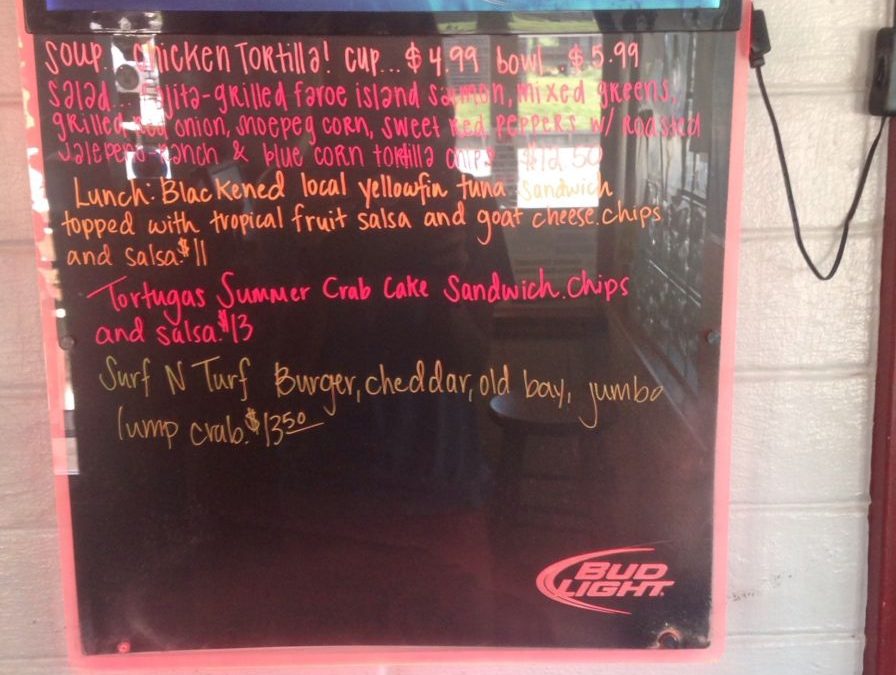 Soup... Chicken Tortilla! cup... $4.99 bowl... $5.99
Salad... Fajita-grilled faroe island salmon, mixed greens,
grilled red onion, shoepeg corn, sweet red peppers w/ roasted
jalepeno-ranch & blue corn tortilla chips $12.50
Lunch: Blackened local yellowfin tuna sandwich
topped with tropical fruit salsa and goat cheese. chips
and salsa. $11
Tortugas Summer Crab Cake Sandwich. Chips
and salsa. $13
Surf N Turf Burger, cheddar, old bay, jumbo
lump crab. $13 50
BUD
LIGHT